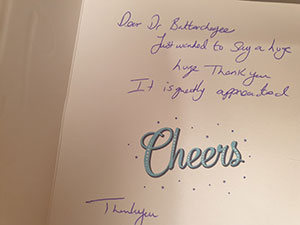 Dear Dr Battacharjee
Just wanted to say a huge
huge Thank you
It is greatly appreciated
Cheers
Thankyou